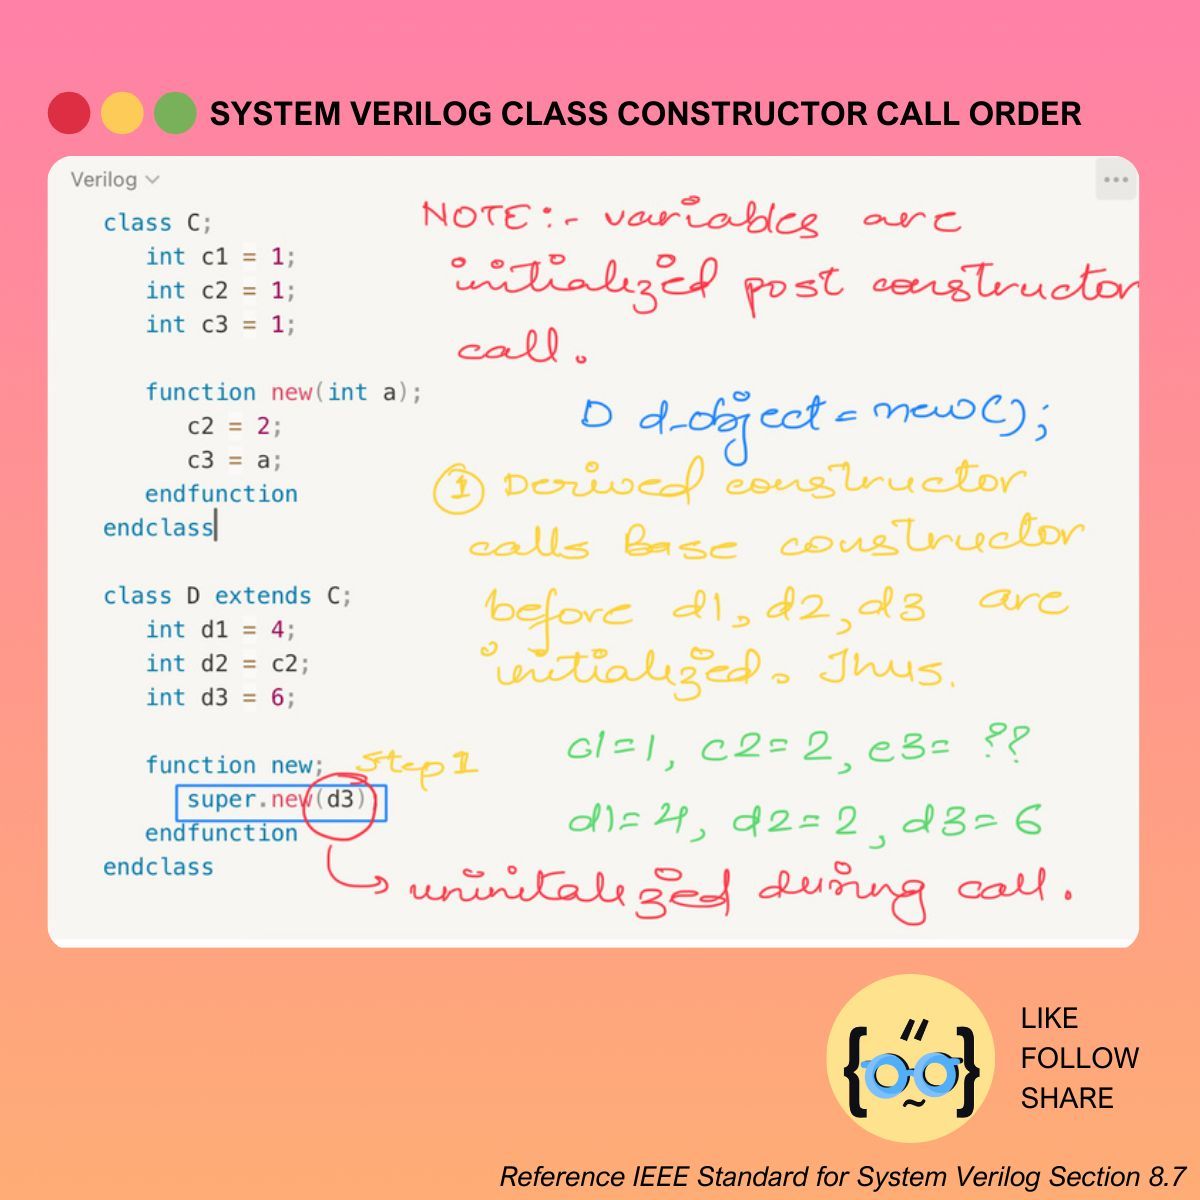 SYSTEM VERILOG CLASS CONSTRUCTOR CALL ORDER
Verilog
class C;
int c1 = 1;
int c2 = 1;
int c3 = 1;
function new(int a);
c2 = 2;
c3 = a;
endfunction
endclass
class D extends C;
int d1 = 4;
int d2 = c2;
int d3 = 6;
function new;
super.new(d3)
endfunction
endclass
NOTE:- variables are
initialized post constructor
call.
D d_object = new();
1 Derived constructor
calls Base constructor
before d1, d2, d3 are
initialized. Thus.
step 1
c1=1, c2=2, c3= ??
d1=4, d2=2, d3=6
uninitalized during call.
LIKE
FOLLOW
SHARE
Reference IEEE Standard for System Verilog Section 8.7